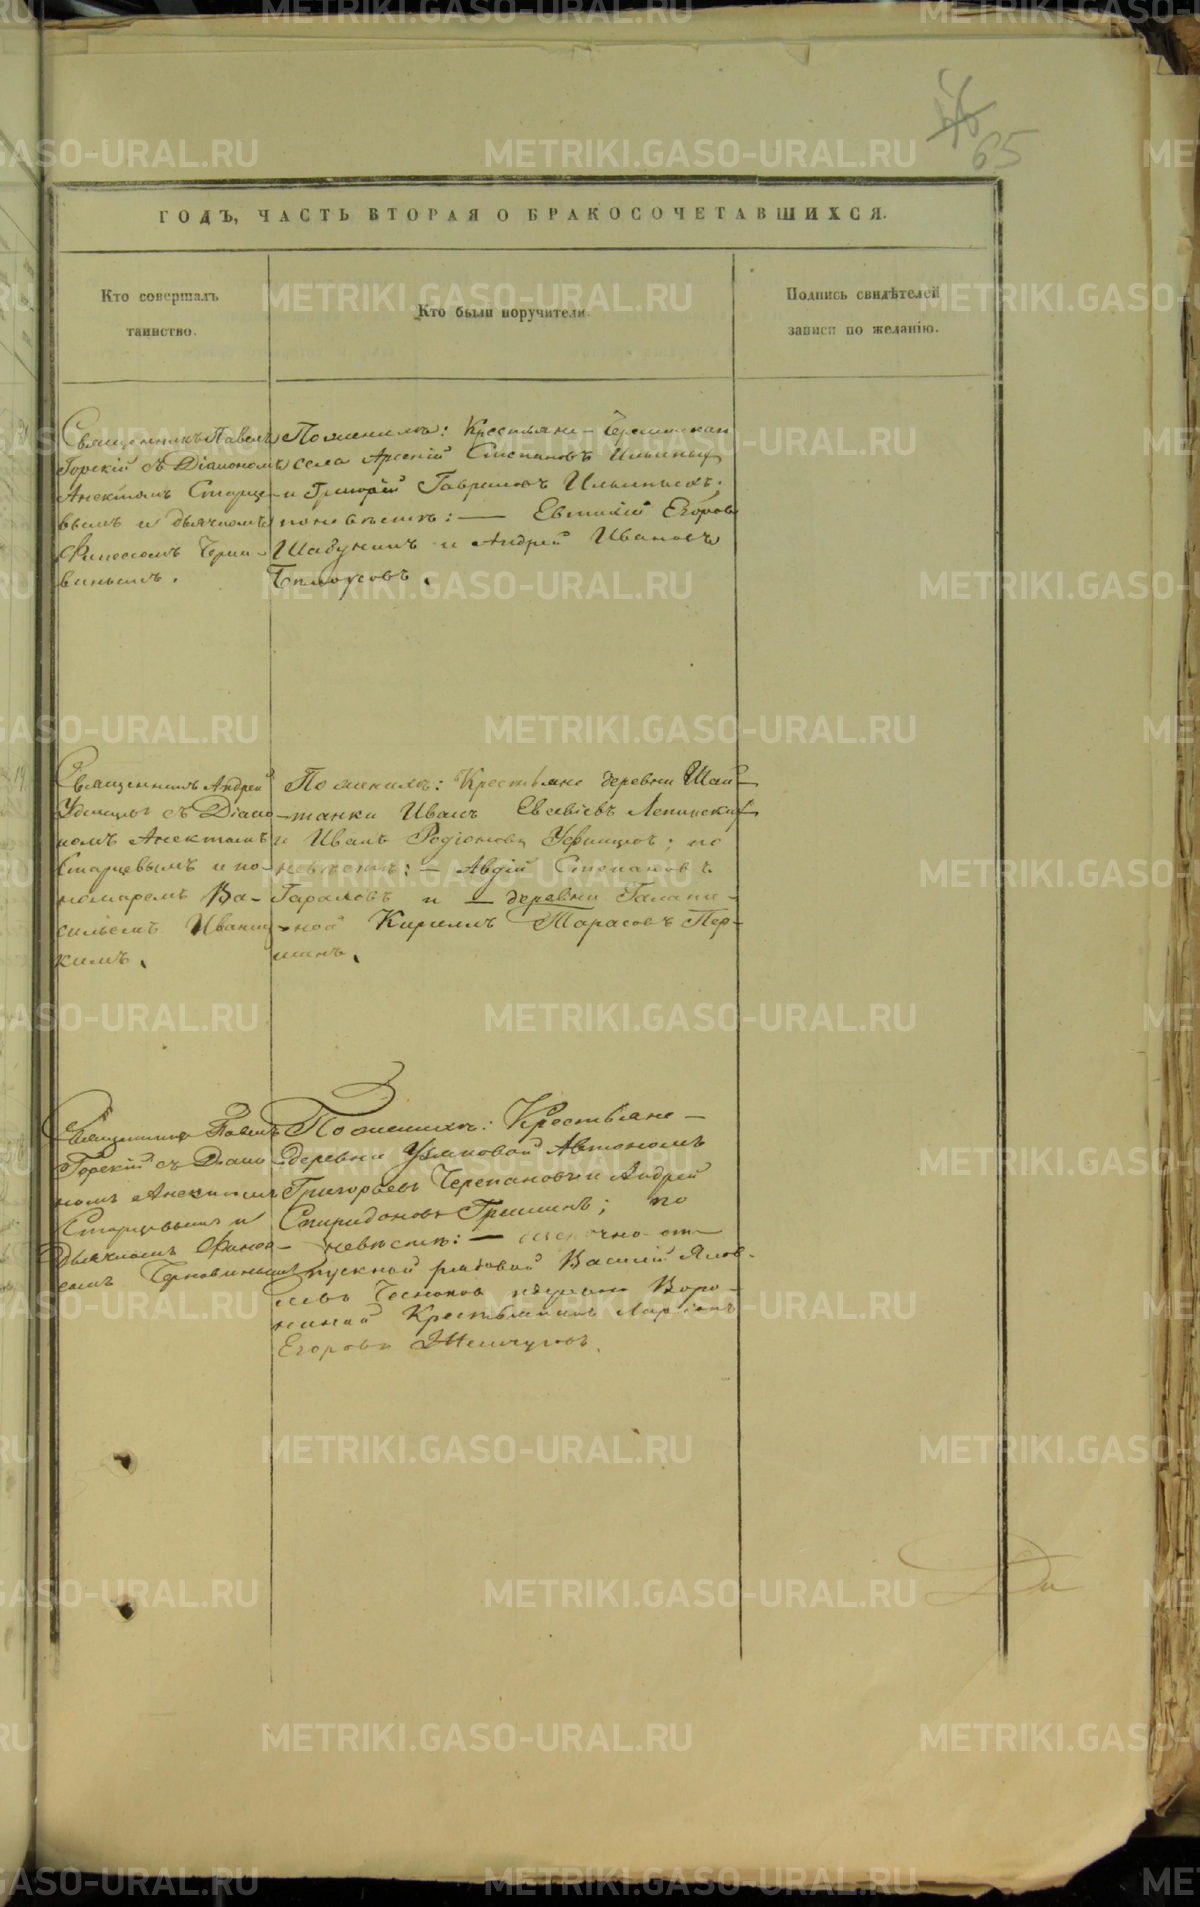 65
ГОДЪ, ЧАСТЬ ВТОРАЯ О БРАКОСОЧЕТАВШИХСЯ.
Кто совершалъ
таинство.
Кто были поручители.
Подпись свидѣтелей
записи по желанію.
Священникъ Павелъ
Горскій съ Діакономъ
Анектомъ Старце-
вымъ и дьячкомъ
винымъ.
По женихѣ: Крестьяне
села Арсеній Степановъ Ильиныхъ
и Григорій Гавриловъ Ильиныхъ;
по невѣстѣ: — Евтихій Егоровъ
Шабунинъ и Андрей Ивановъ
Бѣлоусовъ.
Священникъ Андрей
съ Діако-
номъ Анектомъ
Старцевымъ и по-
номаремъ Ва-
сильемъ Иваниц-
кимъ.
По женихѣ: Крестьяне деревни Шай-
танки Иванъ Евсевіевъ
и Иванъ Родіоновъ Уфинцовъ; по
невѣстѣ: — Авдій Степановъ
и — деревни Галани-
ной Кириллъ Тарасовъ Пер-
шинъ.
Священникъ Павелъ
Горскій съ Діако-
номъ Анектомъ
Старцевымъ и
Дьячкомъ
По женихѣ: Крестьяне
деревни Автономъ
Григорьевъ Черепановъ и Андрей
Спиридоновъ Гришинъ; по
невѣстѣ: — от-
пускной рядовой Василій Яков-
левъ деревни Воро-
ниной Крестьянинъ
Егоровъ Жемчуговъ.